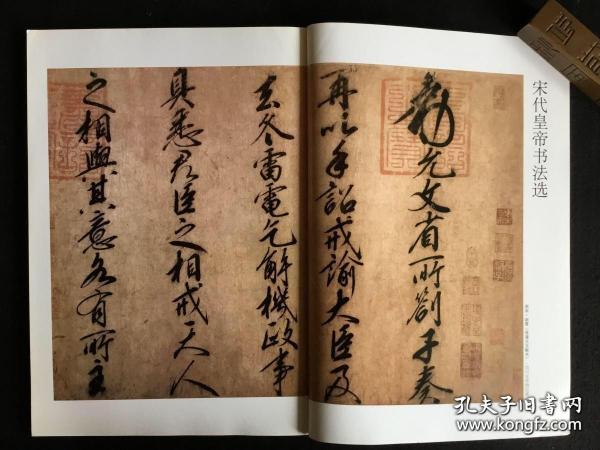 宋代皇帝书法选
勑允文省所劄子奏
再以手詔戒諭大臣及
去冬雷電乞解機政事
具悉君臣之相戒天人
之相與其意各有所主
孔夫子旧书网
www.kongfz.com